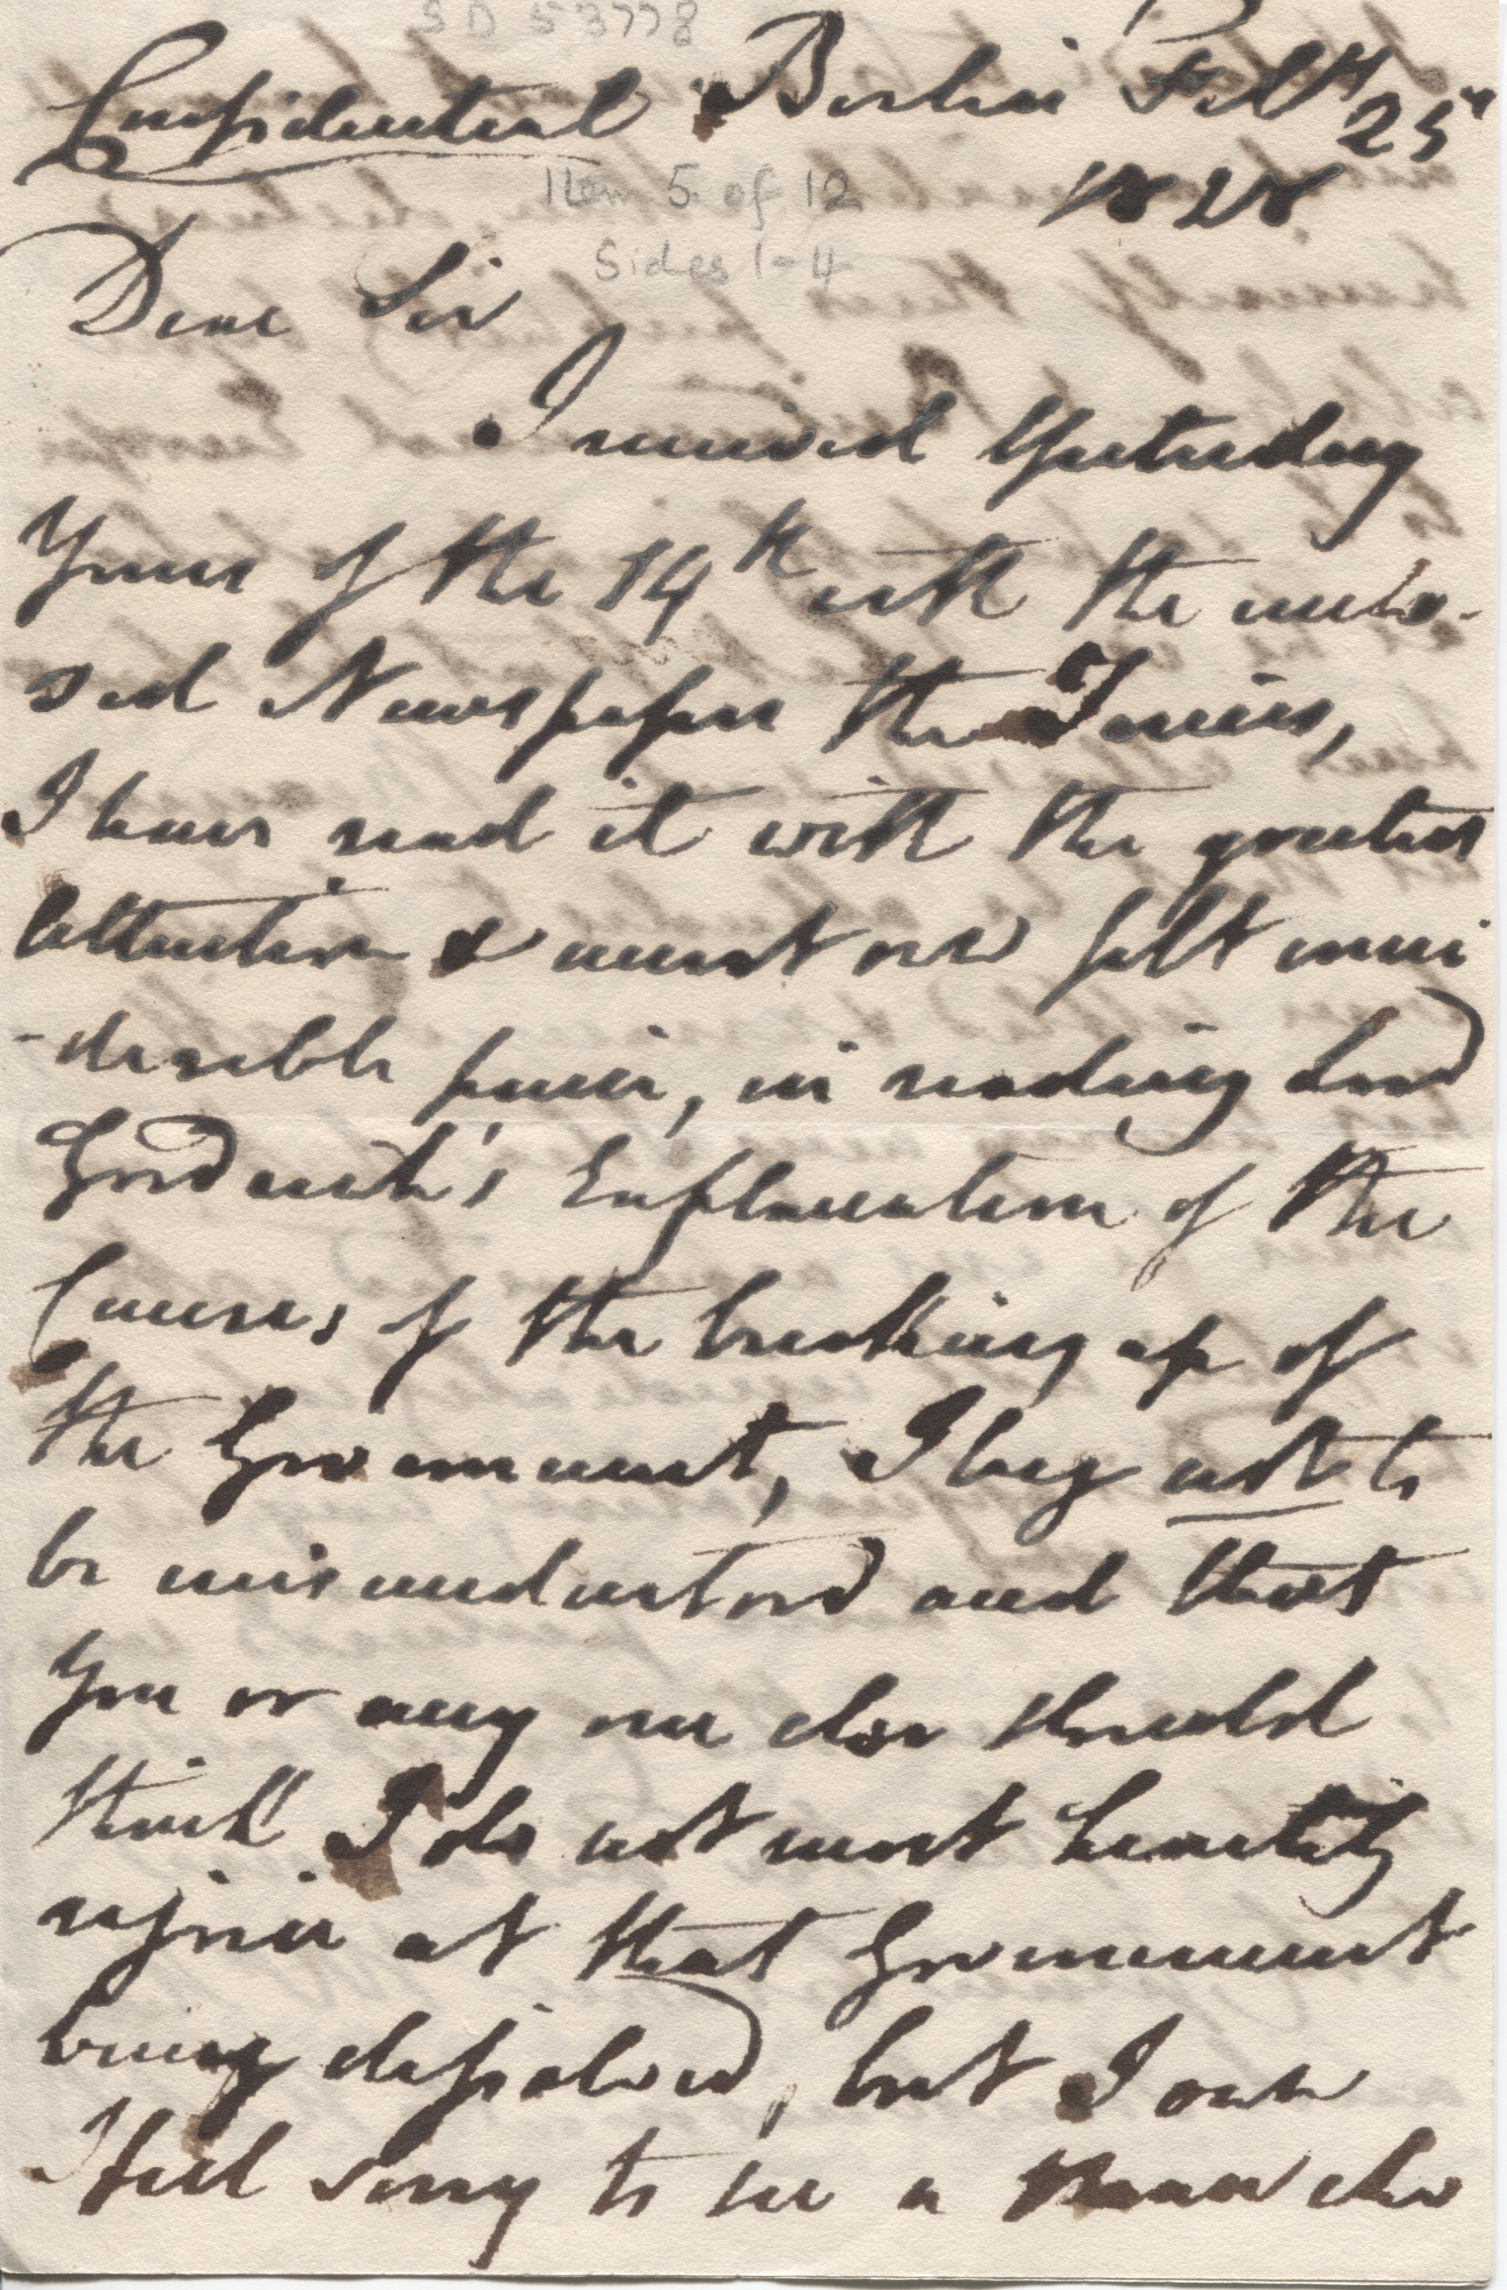 SD 53778
Confidential Berlin Feb 25th
1828
Item 5 of 12
Sides 1-4
Dear Sir
I received Yesterday
Yours of the 14th with the inclo-
sed Newspaper the Times,
I have read it with the greatest
attention & must own felt consi
-derable pain, in reading Lord
Goderich's Explanation of the
Causes of the breaking up of
the Government, I beg not to
be misunderstood and that
You or any one else should
think I do not most heartily
rejoice at that Government
being dissolved, but I own
I feel sorry to see a man who